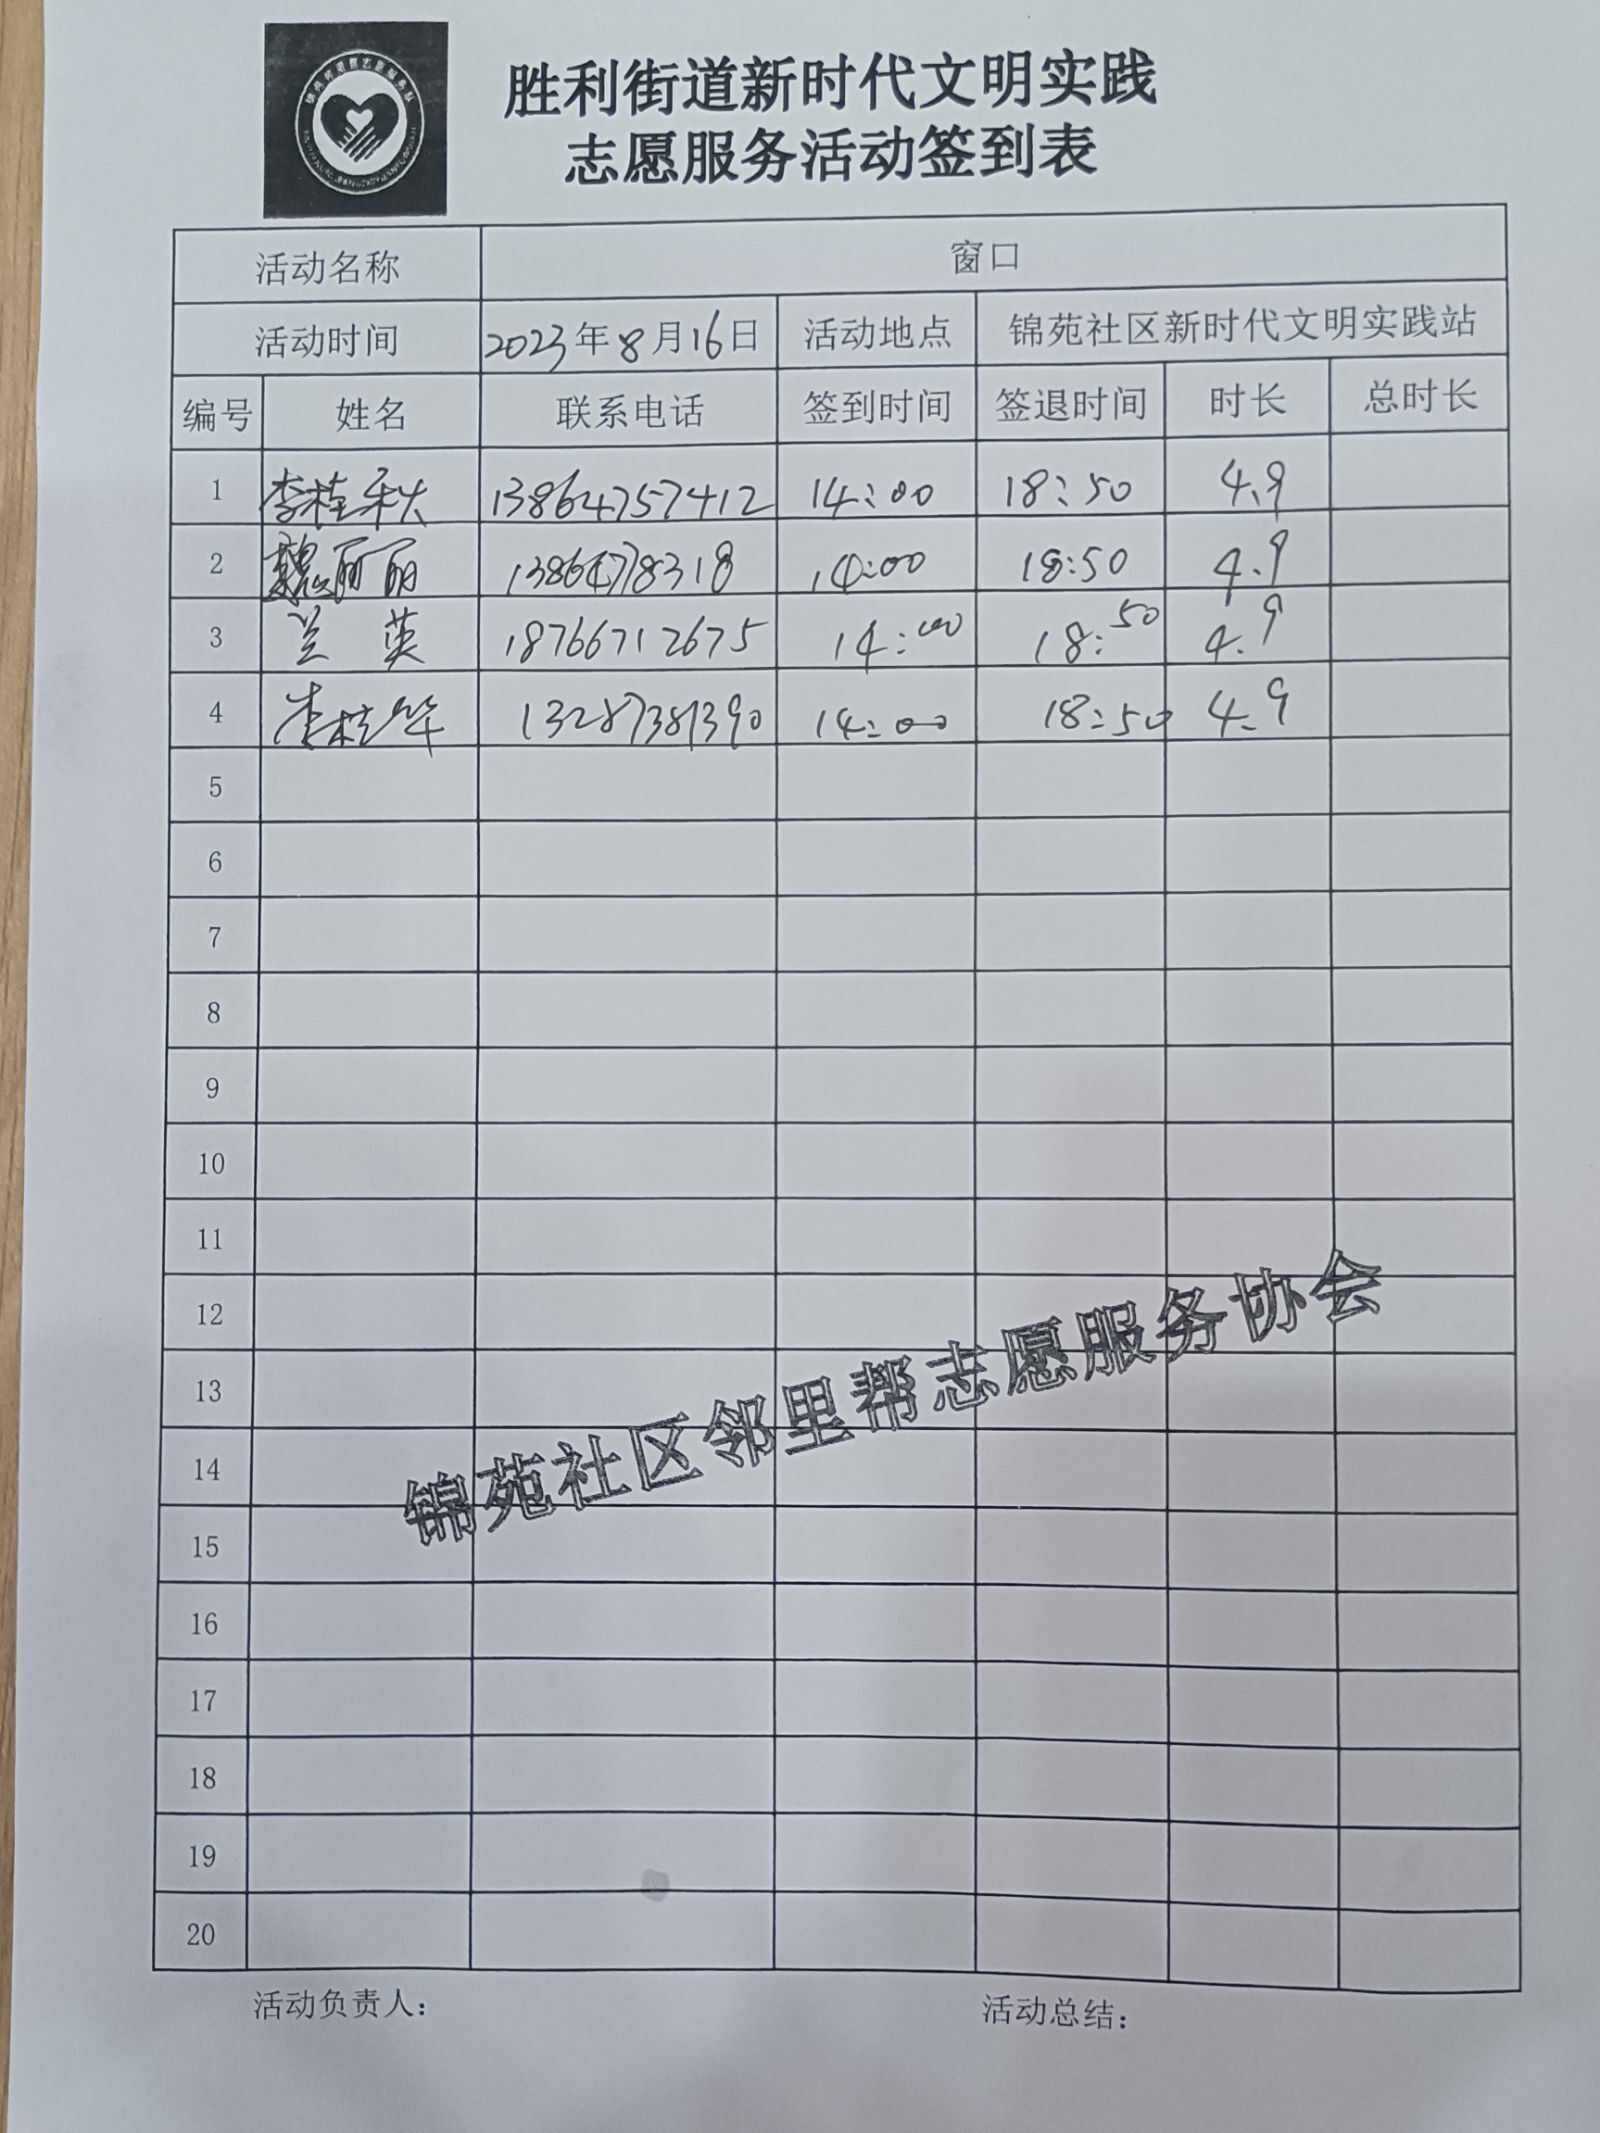 胜利街道新时代文明实践
志愿服务活动签到表
活动名称 窗口
活动时间 2023年8月16日 活动地点 锦苑社区新时代文明实践站
编号 姓名 联系电话 签到时间 签退时间 时长 总时长
1 李桂秋 13864757412 14:00 18:50 4.9
2 魏丽丽 13864778318 14:00 18:50 4.9
3 兰英 18766712675 14:00 18:50 4.9
4 李桂华 13287381390 14:00 18:50 4.9
5
6
7
8
9
10
11
12
13
14
15
16
17
18
19
20
锦苑社区邻里帮志愿服务协会
活动负责人：
活动总结：